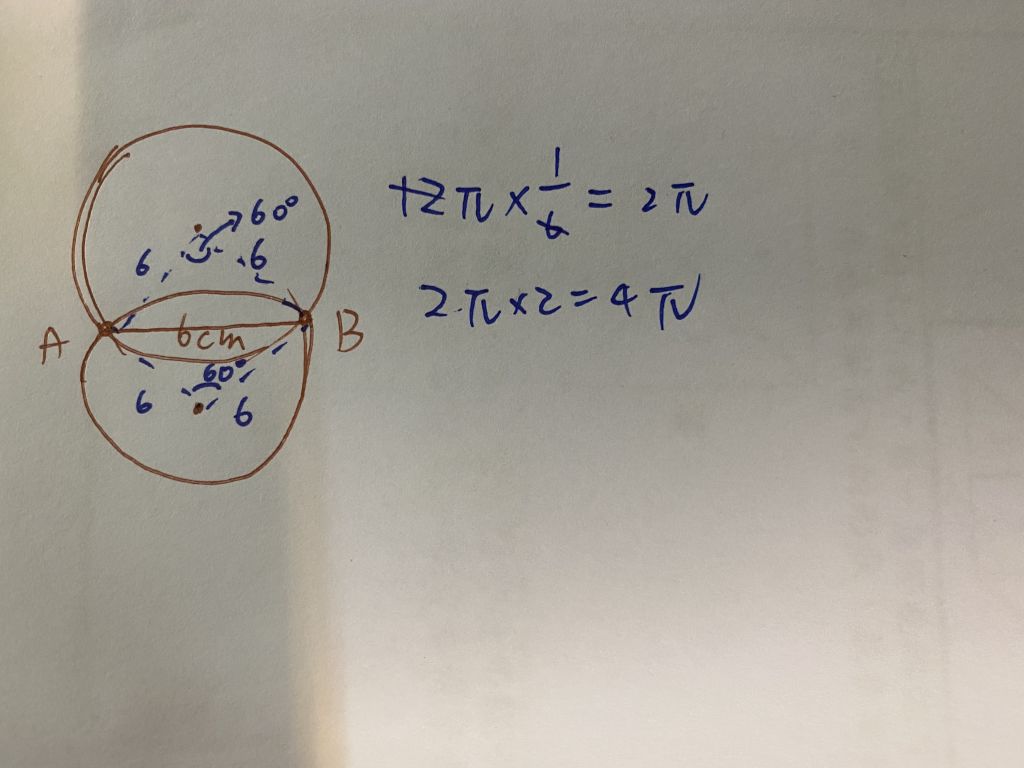 60°
6
6
A
6cm
B
60°
6
6
12π × 1/6 = 2π
2π × 2 = 4π